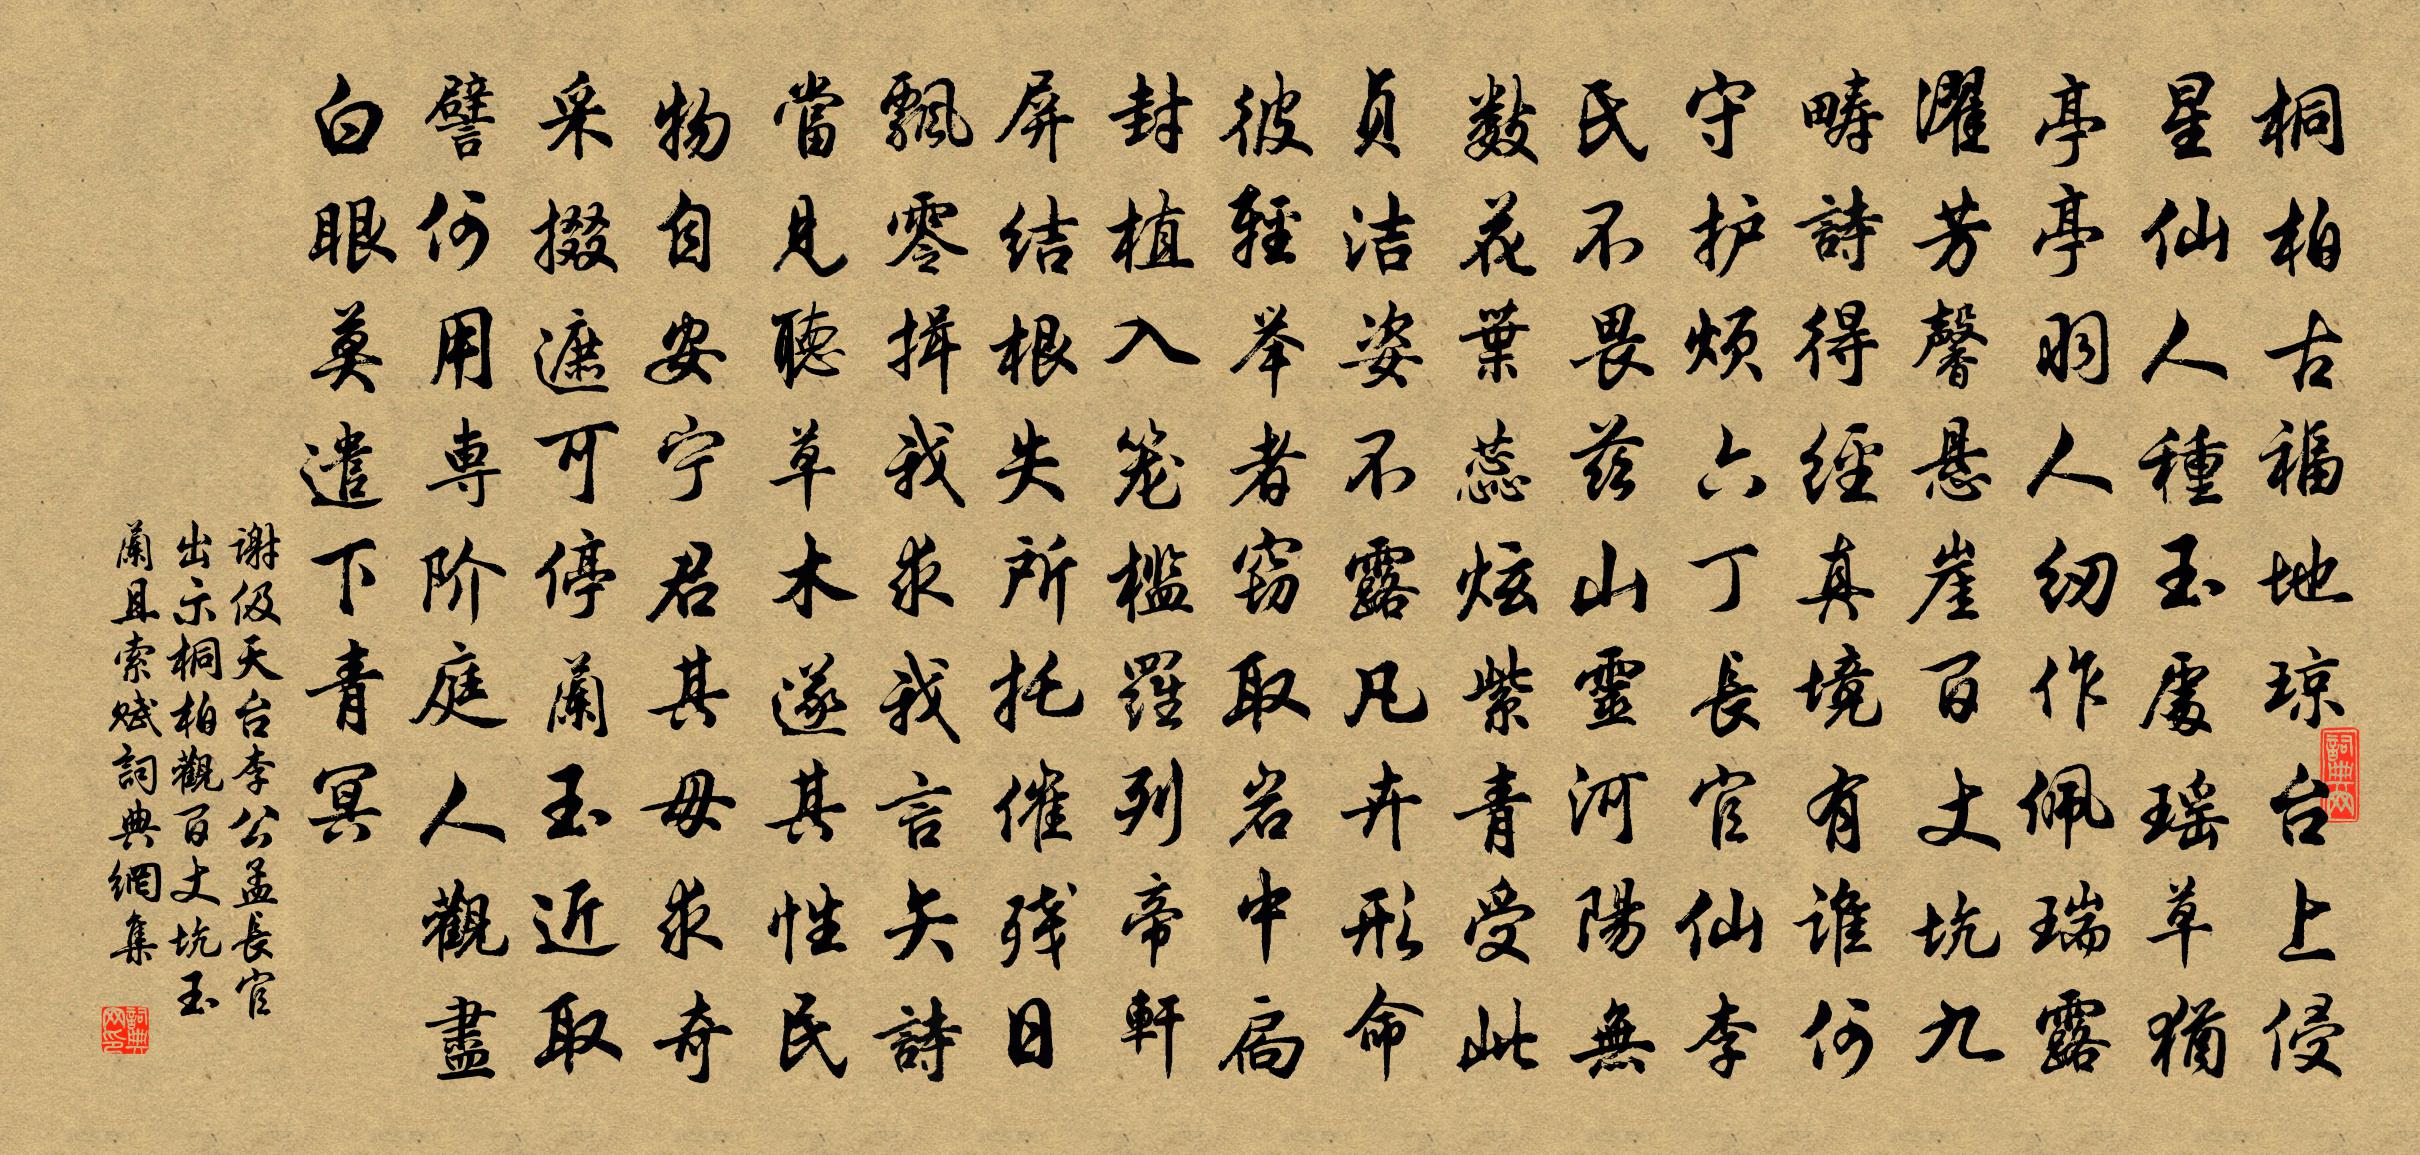 桐柏古福地琼台上侵
星仙人種玉處瑶草猶
亭亭羽人纫作佩瑞露
濯芳馨悬崖百丈坑九
畴詩得經真境有谁何
守护烦六丁長官仙李
民不畏兹山靈河陽無
数花葉蕊炫紫青受此
貞洁姿不露凡卉形命
彼輕举者窃取岩中扃
封植入笼槛羅列帝軒
屏结根失所托催残日
飄零揖我求我言矢詩
當見聽草木遂其性民
物自安宁君其毋求奇
采掇遮可停蘭玉近取
譬何用専阶庭人觀盡
白眼莫遣下青冥
謝伋天台李公孟長官
出示桐柏觀百丈坑玉
蘭且索赋詞典網集
詞典网
詞典网印